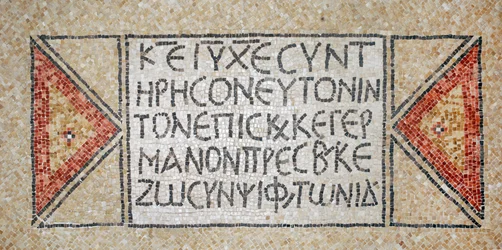 ΚΕΙΥΧΕCΥΝΤ
ΗΡΗCΟΝΕΥΤΟΝΙΝ
ΤΟΝΕΠΙCΚΚΕΓΕΡ
ΜΑΝΟΝΠΡΕCΒΚΕ
ΖΩCΥΝΨΙΦΤΩΝΙΔ